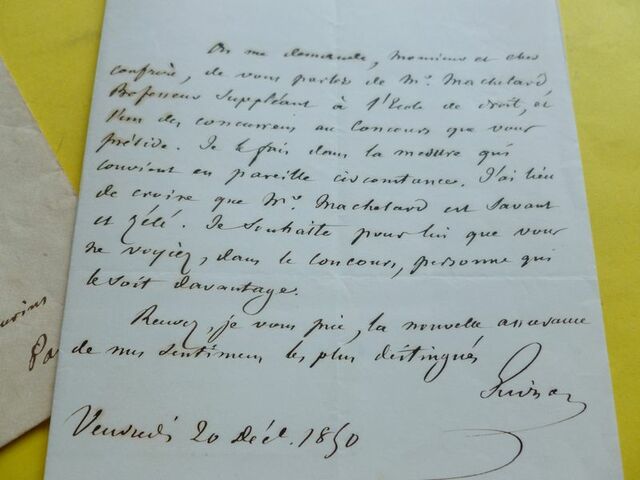 On me demande, Monsieur et cher
confrère, de vous parler de Mr. Machelard,
Professeur Suppléant à l'Ecole de droit, et
l'un des concurrens au Concours que vous
présidé. Je le fais dans la mesure qui
convient en pareille circonstance. J'ai lieu
de croire que Mr. Machelard est Savant
et zélé. Je souhaite pour lui que vous
ne voyiez, dans le concours, personne qui
le soit davantage.
Recevez, je vous prie, la nouvelle assurance
de mes sentimens les plus distingués
Vendredi 20 Déc. 1850